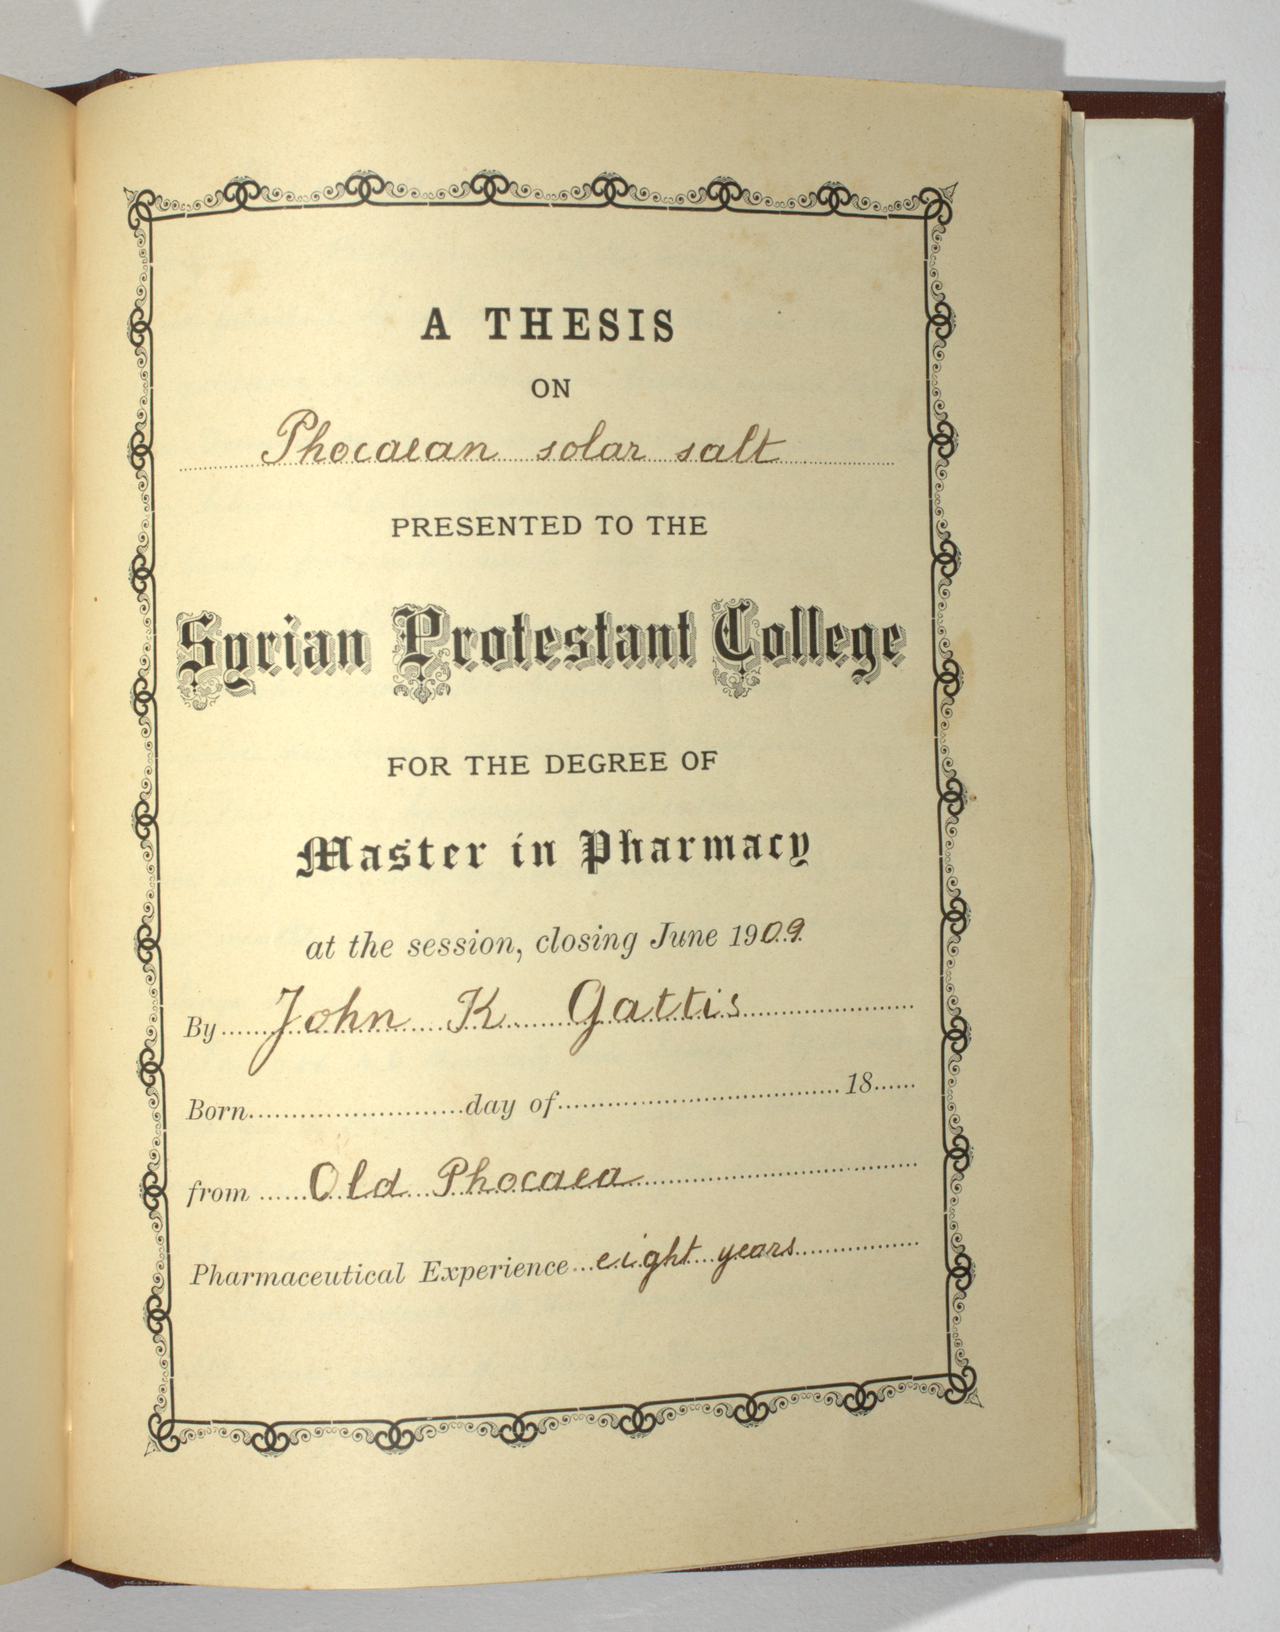 A THESIS
ON
Phocaean solar salt
PRESENTED TO THE
Syrian Protestant College
FOR THE DEGREE OF
Master in Pharmacy
at the session, closing June 1909
By John K Gattis
Born day of 18
from Old Phocaea
Pharmaceutical Experience eight years